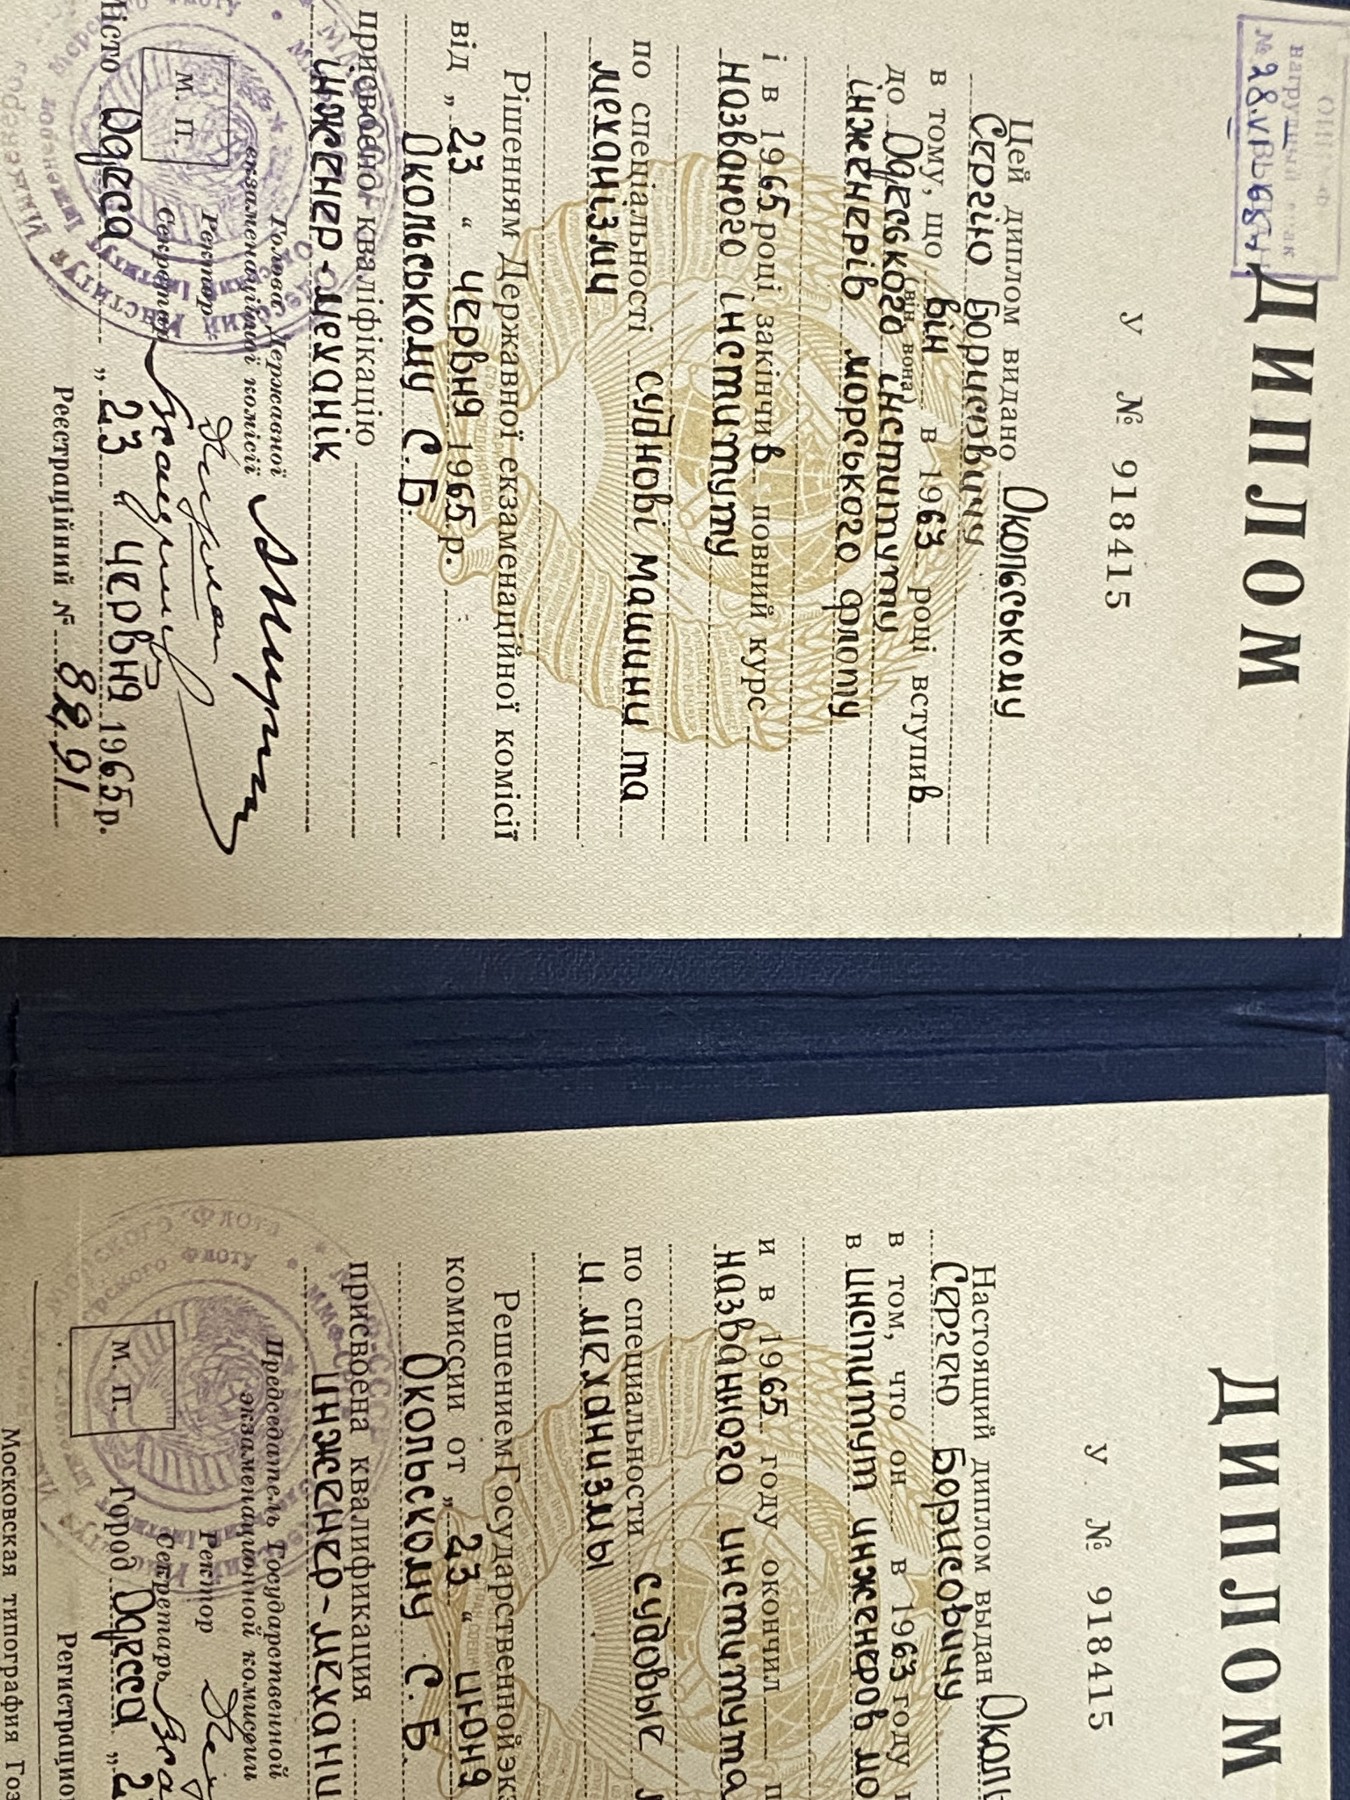 ДИПЛОМ
У № 918415
Цей диплом видано Окольському
Сергію Борисовичу
в тому, що він в 1963 році вступив
(він, вона)
до Одеського інституту
інженерів морського флоту
і в 1965 році закінчив повний курс
названого інституту
по спеціальності суднові машини та
механізми
Рішенням Державної екзаменаційної комісії
від „23“ червня 1965 р.
Окольському С. Б.
присвоєно кваліфікацію
інженер-механік
Голова Державної
екзаменаційної комісії
Ректор
Секретар
М. П.
Місто Одеса „23“ червня 1965 р.
Реєстраційний №
ДИПЛОМ
У № 918415
Настоящий диплом выдан Околь
Сергею Борисовичу
в том, что он в 1963 году
в институт инженеров мо
и в 1965 году окончил п
названного института
по специальности судовые
и механизмы
Решением Государственной эк
комиссии от „23“ июня
Окольскому С. Б.
присвоена квалификация
инженер-механи
Председатель Государственной
экзаменационной комиссии
Ректор
Секретарь
М. П.
Город Одесса „2
Регистрацио
Московская типография Гоз